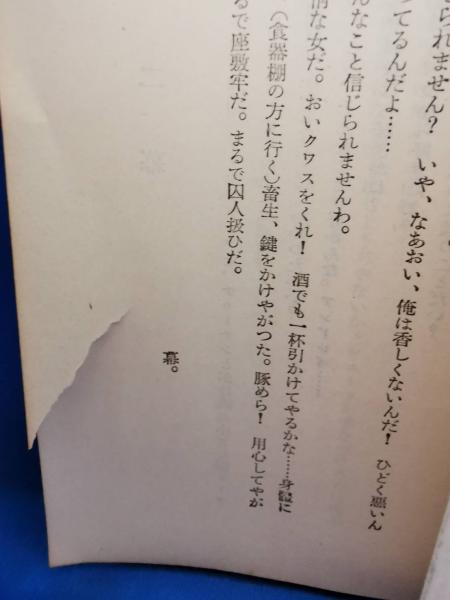 られません? いや、なあおい、俺は香しくないんだ! ひどく悪いん
てるんだよ……
んなこと信じられませんわ。
情な女だ。おいクワスをくれ! 酒でも一杯引かけてやるかな……身體に
(食器棚の方に行く)畜生、鍵をかけやがつた。豚めら! 用心してやが
るで座敷牢だ。まるで囚人扱ひだ。
幕。